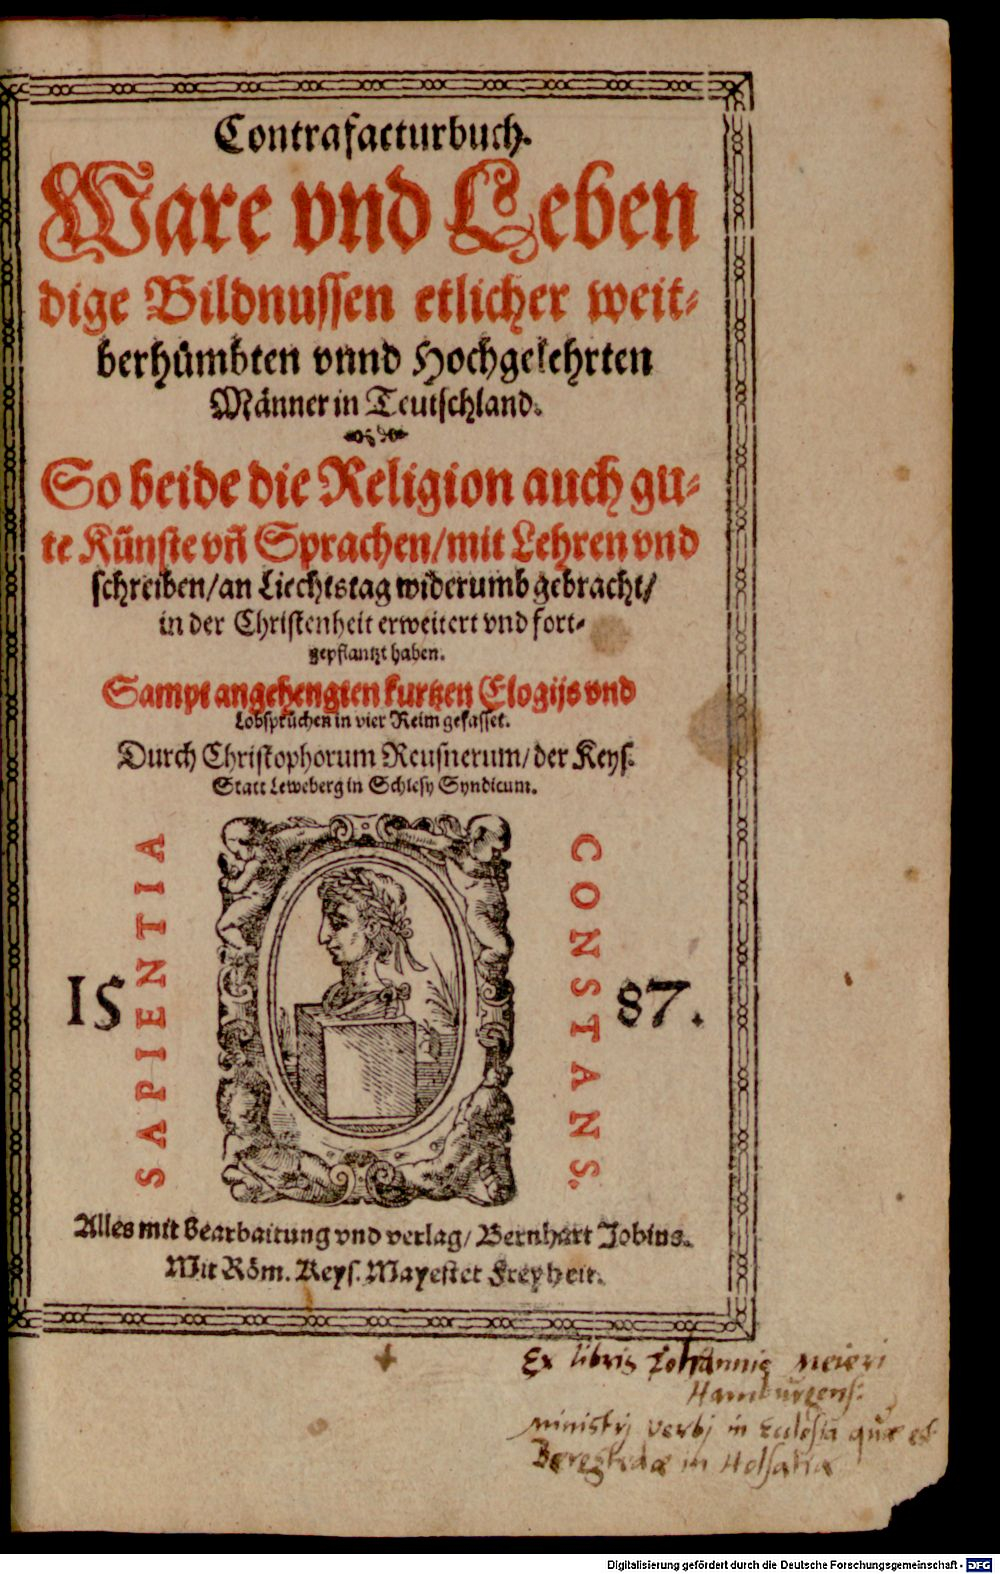 Contrafacturbuch.
Ware vnd Leben
dige Bildnussen etlicher weit-
berhümbten vnnd Hochgelehrten
Männer in Teutschland.
So beide die Religion auch gu-
te Künste vñ Sprachen/mit Lehren vnd
schreiben/an Liechtstag widerumb gebracht/
in der Christenheit erweitert vnd fort-
gepflantzt haben.
Sampt angehengten kurtzen Elogijs vnd
Lobsprüchen in vier Reim gefasset.
Durch Christophorum Reusnerum/der Keys.
Statt Leweberg in Schlesy Syndicum.
SAPIENTIA
CONSTANS.
15 87.
Alles mit Bearbaitung vnd verlag/Bernhart Jobins.
Mit Röm. Keys. Mayestet Freyheit.
Ex libris Johannis Meieri
Hamburgens:
ministrj verbj in Ecclesia quæ est
Bergstedæ in Holsatia
Digitalisierung gefördert durch die Deutsche Forschungsgemeinschaft - DFG